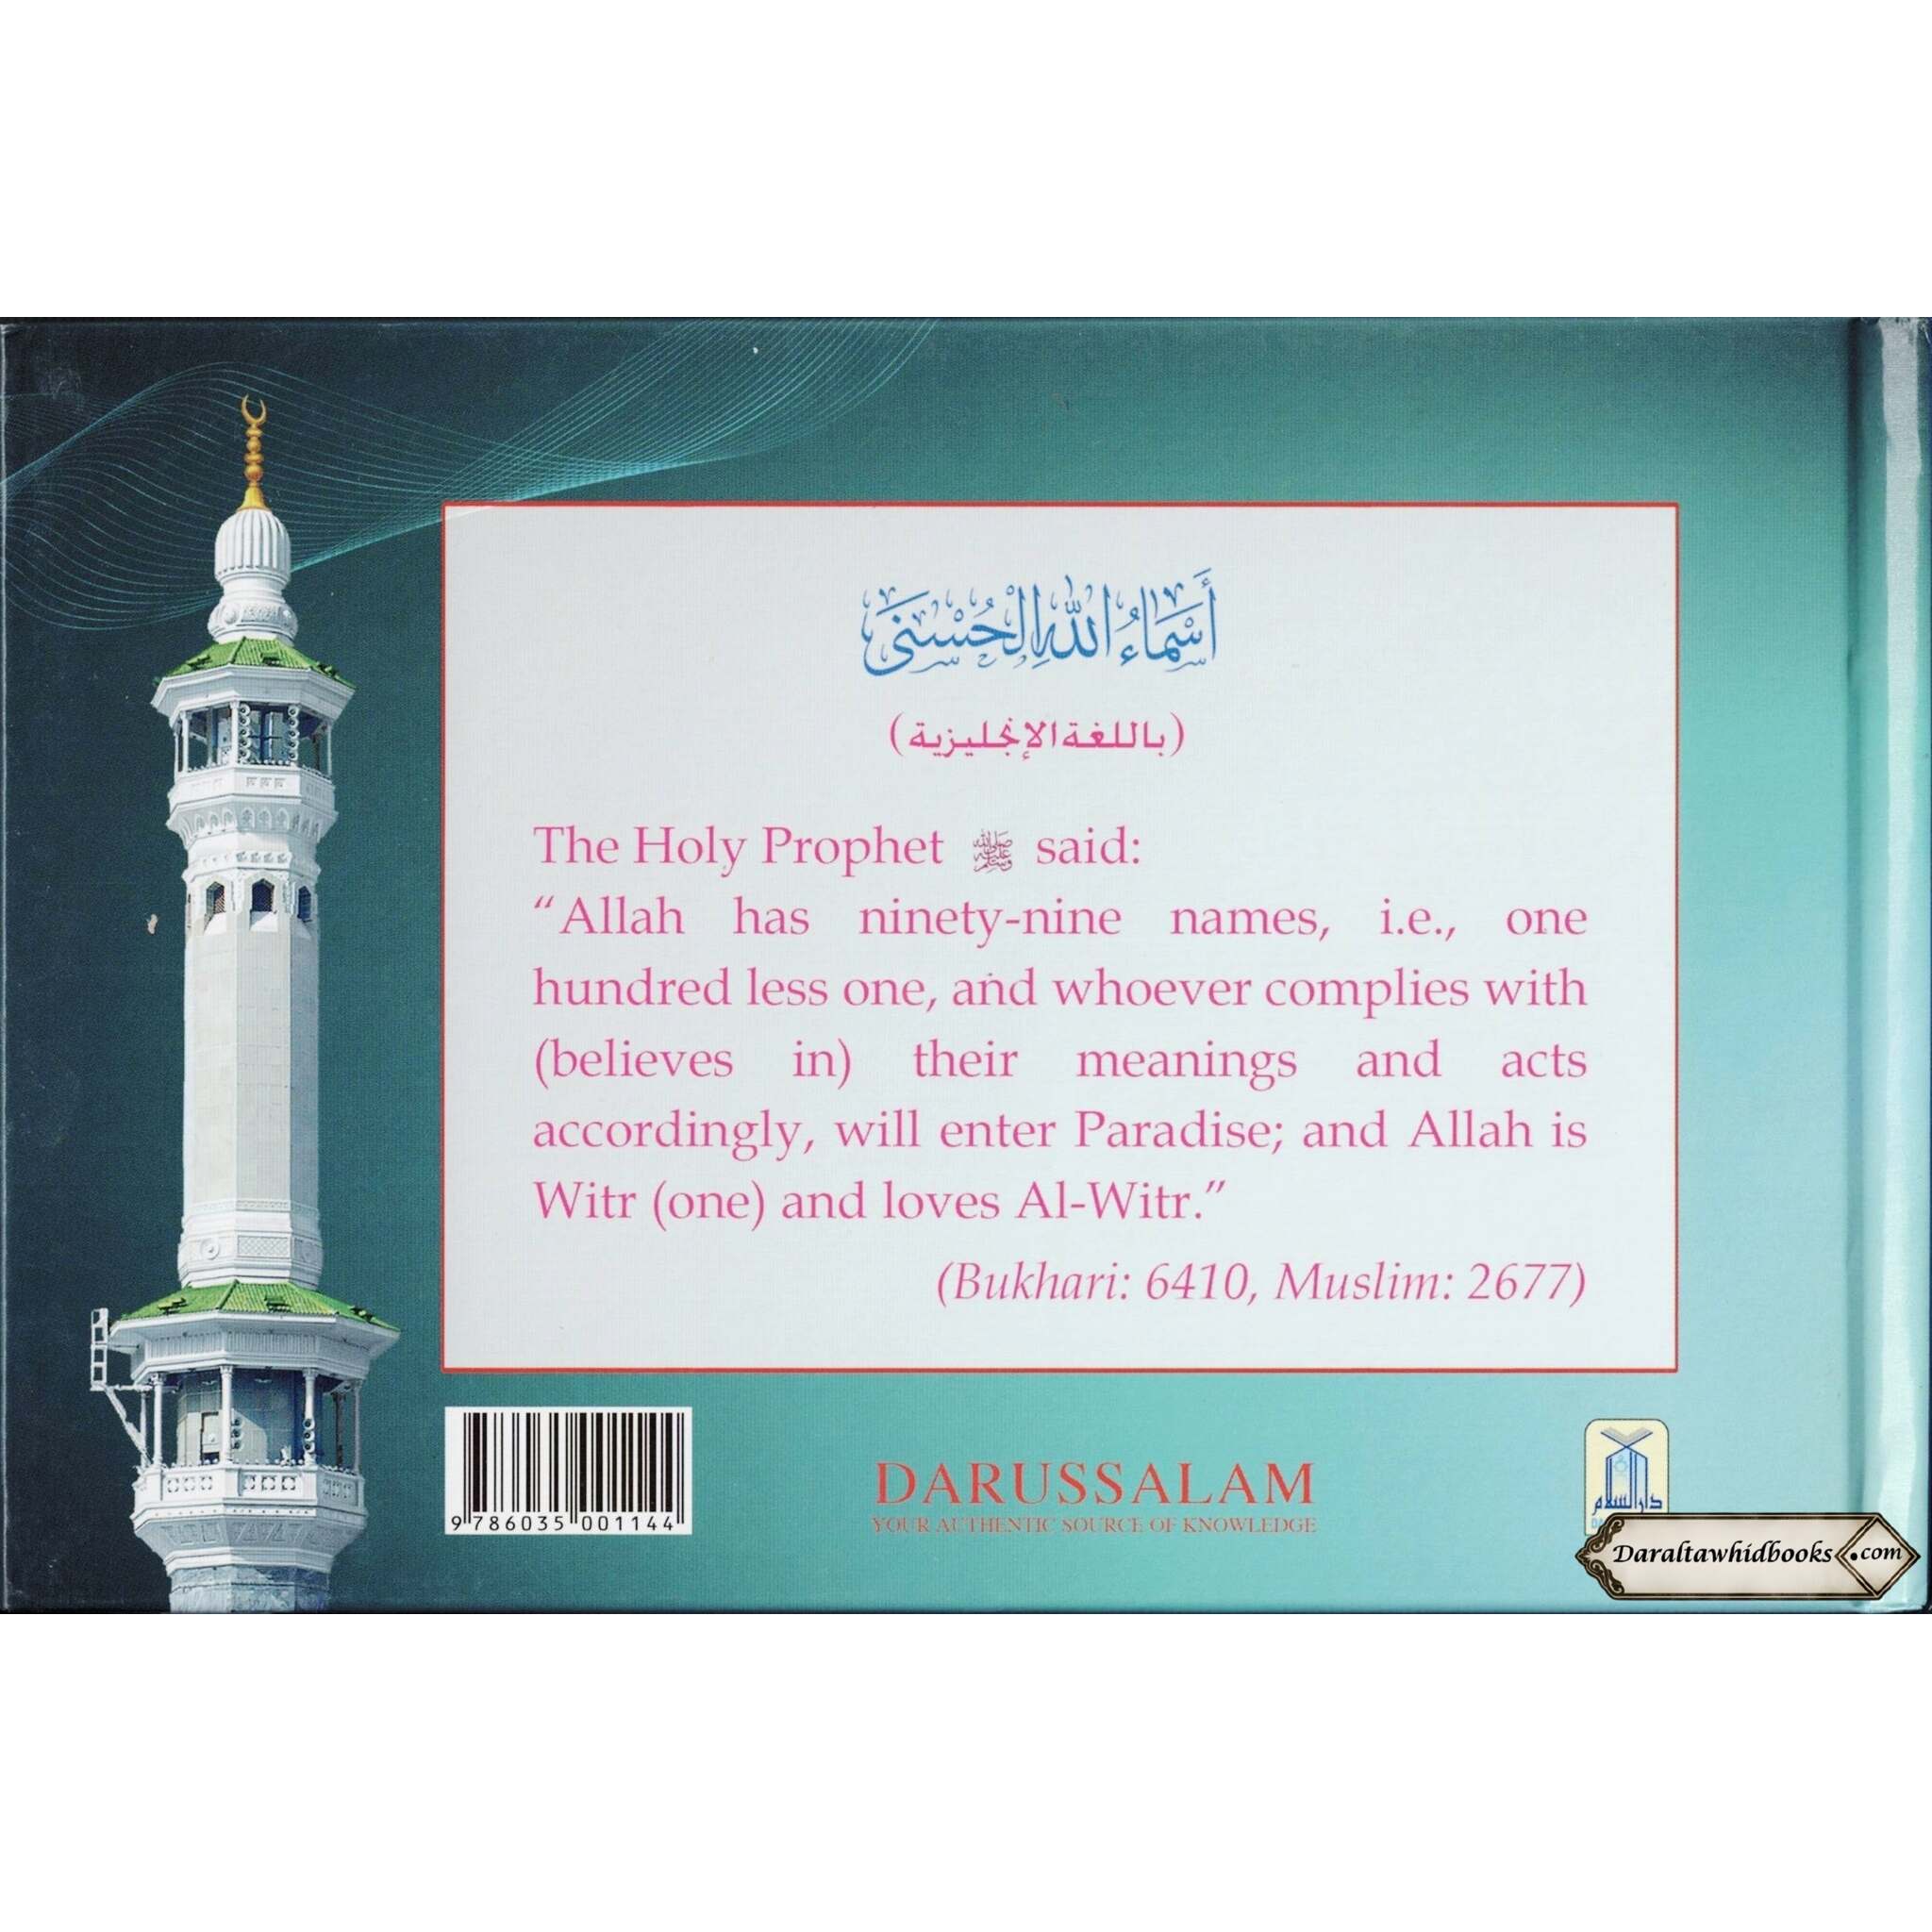 أَسْمَاءُ اللهِ الْحُسْنَى
(باللغة الإنجليزية)
The Holy Prophet ﷺ said:
“Allah has ninety-nine names, i.e., one
hundred less one, and whoever complies with
(believes in) their meanings and acts
accordingly, will enter Paradise; and Allah is
Witr (one) and loves Al-Witr.”
(Bukhari: 6410, Muslim: 2677)
9 786035 001144
DARUSSALAM
YOUR AUTHENTIC SOURCE OF KNOWLEDGE
دارالسلام
Daraltawhidbooks.com